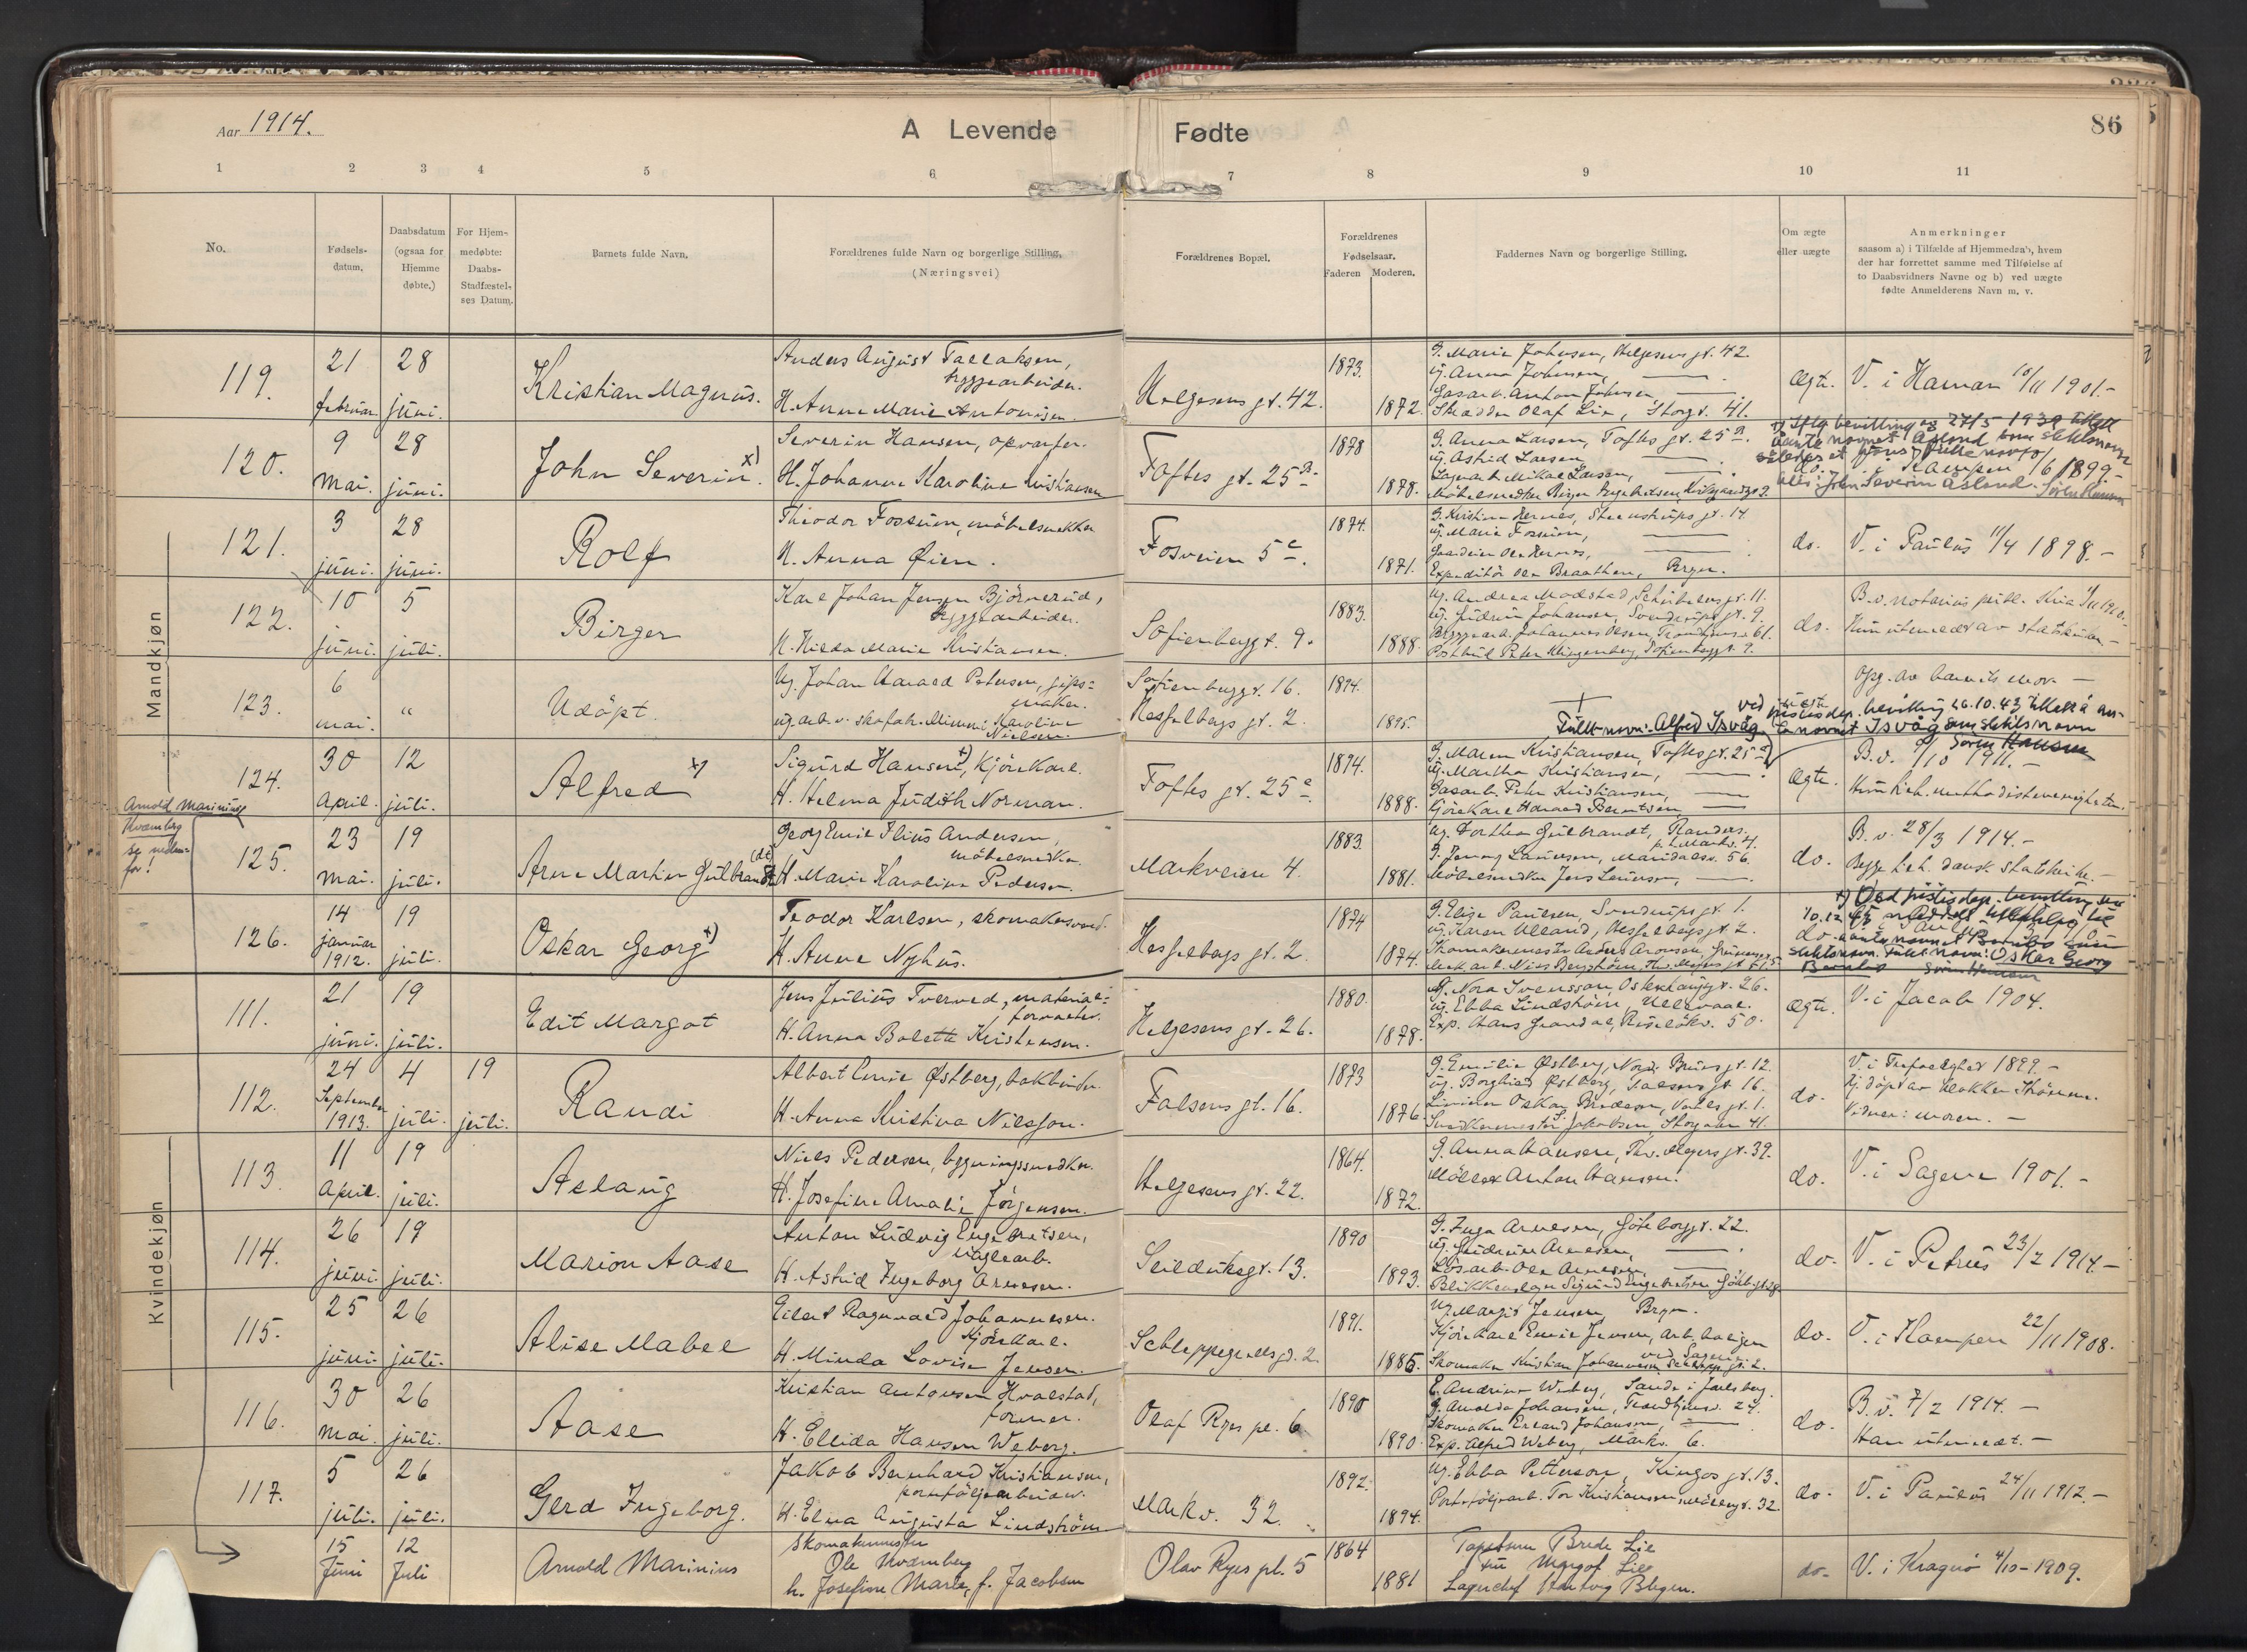 Aar 1914.
A Levende Fødte
86
1 2 3 4 5 6 7 8 9 10 11
No.
Fødsels-
datum.
Daabsdatum
(ogsaa for
Hjemme
døbte.)
For Hjem-
medøbte:
Daabs-
Stadfæstel-
ses Datum.
Barnets fulde Navn.
Forældrenes fulde Navn og borgerlige Stilling.
(Næringsvei)
Forældrenes Bopæl.
Forældrenes
Fødselsaar.
Faderen Moderen.
Faddernes Navn og borgerlige Stilling.
Om ægte
eller uægte
Anmerkninger
saasom a) i Tilfælde af Hjemmedaab, hvem
der har forrettet samme med Tilføielse af
to Daabsvidners Navne og b) ved uægte
fødte Anmelderens Navn m. v.
Mandkjøn
119.
21 februar
28 juni.
Kristian Magnus.
Anders August Tallaksen,
byggearbeider.
H. Anna Marie Antonisen
Helgesens gt. 42.
1873.
1872.
G. Marie Johnsen, Helgesens gt. 42.
ug. Anna Johnsen,
Gasarb. Anton Johnsen
Skrædder Olaf Lie, Storgt. 41.
Ægte.
V. i Hamar 10/11 1901.-
120.
9 mai.
28 juni.
John Severin x)
Severin Hansen, opvarter.
H. Johanne Karoline Kristiansen
Toftes gt. 25 B.
1878
1878.
G. Anna Larsen, Toftes gt. 25 B.
ug. Astrid Larsen
Lagerarb. Mikal Larsen,
Möbelsnedker Birger Ingebretsen,
do. i Kampen /6 1899.-
John Severin Åsland.
121.
3 juni.
28 juni.
Rolf
Theodor Fossum, möbelsnekker
H. Anna Øien.
Fosveien 5 c.
1874.
1871.
G. Kristine Hernes, Steenstrups gt. 14
ug. Marie Fossum,
Gaardeier Ole Hernes,
Expeditör Ole Braathen, Bryn.
do.
V. i Paulus 11/4 1898.-
122.
10 juni.
5 juli.
Birger
Karl Johan Jensen Björnerud,
byggearbeider.
H. Hilda Marie Kristiansen.
Sofienberggt. 9.
1883.
1888.
ug. Andrea Modstad, Schübelers gt. 11.
ug. Gudrun Johansen, Sondrups gt. 9.
Byggearb. Johannes Olsen, Trondhjemsv. 61.
Postbud Peter Klingenberg, Sofienberggt. 9.
do.
B. v. notarius publ. Kria 1/11 1910.
Hun utmeldt av statskirken -
123.
6 mai.
"
Udöpt.
Ug. Johan Harald Petersen, gips-
maker.
ug. arb. v. skofabr. Minni Karoline
Nielsen.
Sofienberggt. 16.
Hesselbergs gt. 2.
1894.
1895.
Opg. av barnets mor -
Fullt navn: Alfred Isvåg.
124.
30 April.
12 juli.
Alfred x)
Sigurd Hansen, kjörekarl.
H. Helma Judith Norman.
Toftes gt. 25 c.
1894.
1888.
G. Maren Kristiansen, Toftes gt. 25
ug. Martha Kristiansen,
Gasarb. Peter Kristiansen,
Kjörekarl Harald Berntsen
Ægte.
B. v. 9/10 1911.-
Hun tilh. methodistmenigheten.
Arnold Marinius
Kvamberg
se neden-
for!
125.
23 mai.
19 juli.
Arne Martin Gulbrandt (dt)
Georg Emil Ilius Andersen,
möbelsnedker.
H. Marie Karoline Pedersen.
Markveien 4.
1883.
1881.
ug. Dorthea Gulbrandt, Randers.
p.t. Markv. 4.
G. Jenny Laursen, Maridalsv. 56.
Möbelsnedker Jens Laursen,
do.
B. v. 28/3 1914.-
Begge tilh. dansk statskirke.-
126.
14 januar 1912.
19 juli.
Oskar Georg x)
Teodor Karlsen, skomakersvend.
H. Anna Nyhus.
Hesselbergs gt. 2.
1874
1874.
G. Elise Paulsen, Sondrups gt. 1.
ug. Karen Ulland, Hesselbergs gt. 2.
Skomakermester Anders Aronsen,
do.
slektsnavn. Fullt navn: Oskar Georg
Kvindekjøn
111.
21 juni.
19 juli.
Edit Margot
Jens Julius Tverved, material-
forvalter.
H. Anna Bolette Kristensen.
Helgesens gt. 26.
1880.
1878.
ug. Ebba Lindström, Ullevaal.
Exp. Hans Grandal, Ruselökv. 50.
Ægte.
V. i Jacob 1904.
112.
24 September 1913.
4 juli.
19 juli.
Randi
Albert Emil Østberg, bokbinder
H. Anna Kristina Nilsson.
Falsens gt. 16.
1873
1876.
G. Emilie Østberg, Nord. Bruns gt. 12.
ug. Borghild Østberg, Falsens gt. 16.
do.
V. i Trefoldighet 1899.-
Hj. döpt av
Vidner: moren.-
113.
11 April.
19 juli.
Aslaug
Niels Pedersen, bygningssnedker.
H. Josefine Amalie Jörgensen.
Helgesens gt. 22.
1864.
1872.
G. Anna Hansen, Thv. Meyers gt. 39.
Möller Anton Hansen.
do.
V. i Sagene 1901.-
114.
26 juni.
19 juli.
Marion Aase
Anton Ludvig Engebretsen,
naglearb.
H. Astrid Ingeborg Arnesen.
Seilduksgt. 13.
1890
1893.
G. Inga Arnesen, Göteborggt. 22.
ug. Gudrun Arnesen,
Løsarb. Ole Arnesen
Blikkenslager Sigurd Engebretsen,
do.
V. i Petrus 23/2 1914.-
115.
25 juni.
26 juli.
Alise Mabel
Eilert Ragnvald Johannesen.
Kjörekarl.
H. Minda Lovise Jensen.
Schleppegrells gt. 2.
1891.
1886.
ug. Margit Jensen Bryn.
Kjörekarl Emil Jensen, Arb. boligen
ved Sagene
Skomaker Kristian Johannesen Schlepp. gt. 2.
do.
V. i Kampen 22/11 1908.
116.
30 mai.
26 juli.
Aase
Kristian Antonsen Hvalstad,
former.
H. Ellida Hansen Weberg.
Olaf Ryes pl. 6
1890
1890.
E. Andrine Weberg, Sande i Jarlsberg.
G. Amalda Johansen, Trondhjemsv. 24.
Skomaker Erland Johansen,
Exp. Alfred Weberg, Markv. 6.
do.
B. v. 7/2 1914.-
Han utmeldt.-
117.
5 juli.
26 juli.
Gerd Ingeborg.
Jakob Bernhard Kristiansen,
porteföljearbeider.
H. Elna Augusta Lindström
Markv. 32.
1892.
1894.
ug. Ebba Petterson, Kingos gt. 13.
Porteföljearb. Tor Kristiansen, Möllergt. 32.
do.
V. i Paulus 24/11 1912.-
15 Juni
12 Juli
Arnold Marinius
Skomakermester
Ole Kvamberg
h. Josefine Marie, f. Jacobsen
Olav Ryes pl. 5
1864
1881
Brede Lie
Fru Margot Lie
Lagerchef Hartvig
do.
V. i Kragerø 4/10-1909.